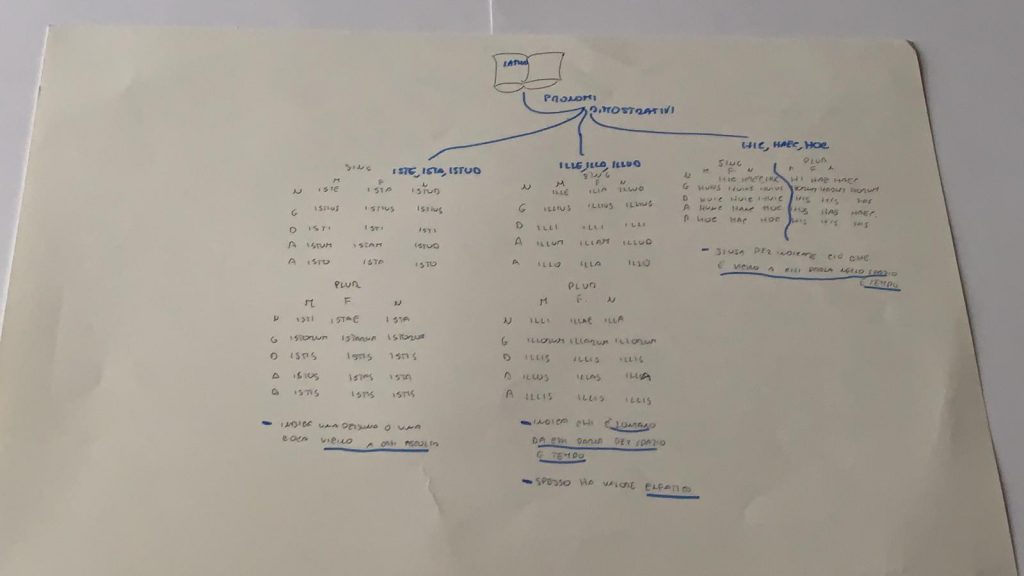 LATINO
PRONOMI
DIMOSTRATIVI
ISTE, ISTA, ISTUD
SING
M F N
N ISTE ISTA ISTUD
G ISTIUS ISTIUS ISTIUS
D ISTI ISTI ISTI
A ISTUM ISTAM ISTUD
A ISTO ISTA ISTO
PLUR
M F N
N ISTI ISTAE ISTA
G ISTORUM ISTARUM ISTORUM
D ISTIS ISTIS ISTIS
A ISTOS ISTAS ISTA
A ISTIS ISTIS ISTIS
- INDICA UNA PERSONA O UNA
COSA VICINO A CHI ASCOLTA
ILLE, ILLA, ILLUD
SING
M F N
N ILLE ILLA ILLUD
G ILLIUS ILLIUS ILLIUS
D ILLI ILLI ILLI
A ILLUM ILLAM ILLUD
A ILLO ILLA ILLO
PLUR
M F. N
N ILLI ILLAE ILLA
G ILLORUM ILLARUM ILLORUM
D ILLIS ILLIS ILLIS
A ILLOS ILLAS ILLA
A ILLIS ILLIS ILLIS
- INDICA CHI È LONTANO
DA CHI PARLA PER SPAZIO
E TEMPO
- SPESSO HA VALORE ENFATICO
HIC, HAEC, HOC
SING PLUR
M F N M F N
N HIC HAEC HOC HI HAE HAEC
G HUIUS HUIUS HUIUS HORUM HARUM HORUM
D HUIC HUIC HUIC HIS HIS HIS
A HUNC HANC HOC HOS HAS HAEC
A HOC HAC HOC HIS HIS HIS
- SI USA PER INDICARE CIÒ CHE
È VICINO A CHI PARLA NELLO SPAZIO
E TEMPO